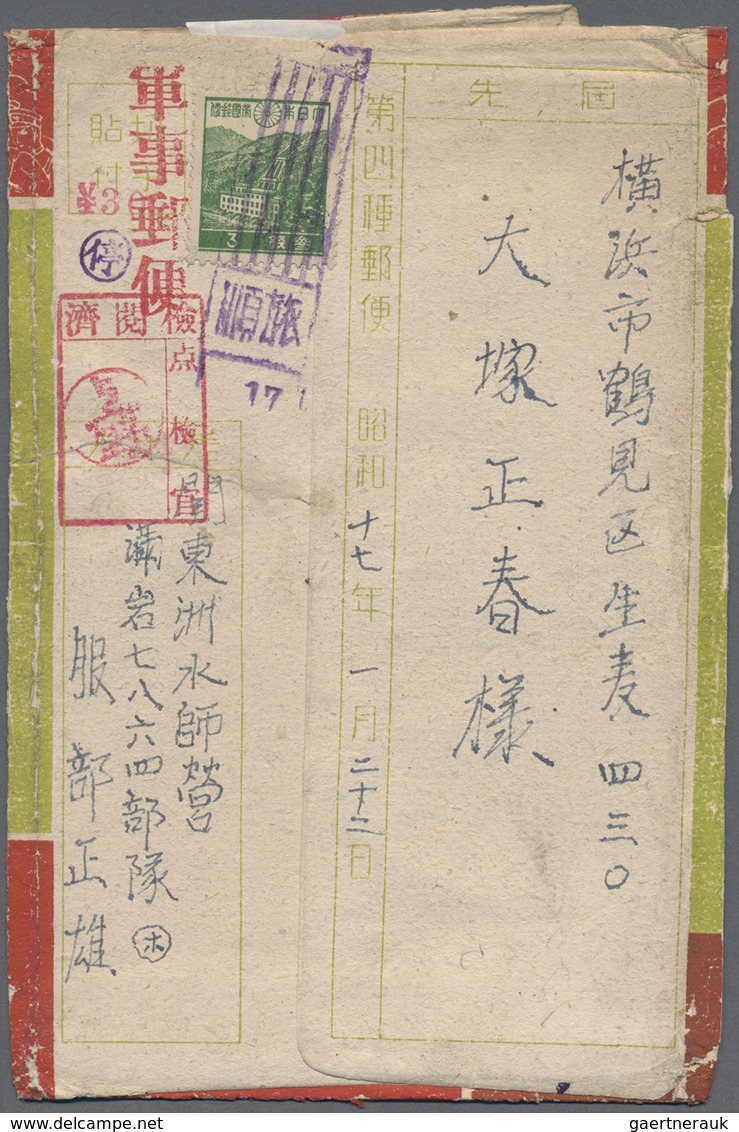 届先
横浜市鶴見区生麦四三〇
大塚正春様
第四種郵便 昭和十七年一月二十二日
大日本帝國郵便
3
軍事郵便
貼付
¥3
停
旅順
17
檢閲濟
点檢官
関東洲水師営
満岩七八六四部隊㋭
服部正雄
gaertnerauk